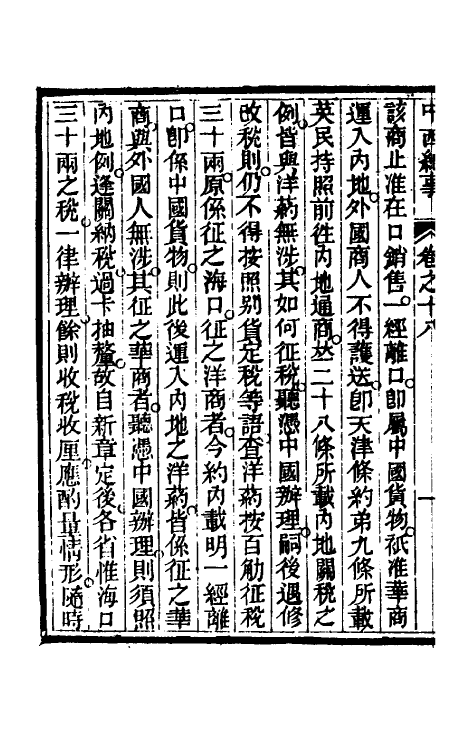 中西紀事 卷之十八 一
該商止准在口銷售一經離口卽屬中國貨物祇准華商
運入內地外國商人不得護送卽天津條約第九條所載
英民持照前往內地通商並二十八條所載內地關稅之
例皆與洋葯無涉其如何征稅聽憑中國辦理嗣後遇修
改稅則仍不得按照别貨定稅等語查洋葯按百觔征稅
三十兩原係征之海口征之洋商者今約內載明一經離
口卽係中國貨物則此後運入內地之洋葯皆係征之華
商與外國人無涉其征之華商者聽憑中國辦理則須照
內地例逢關納稅過卡抽釐故自新章定後各省惟海口
三十兩之稅一律辦理餘則收稅收厘應酌量情形隨時